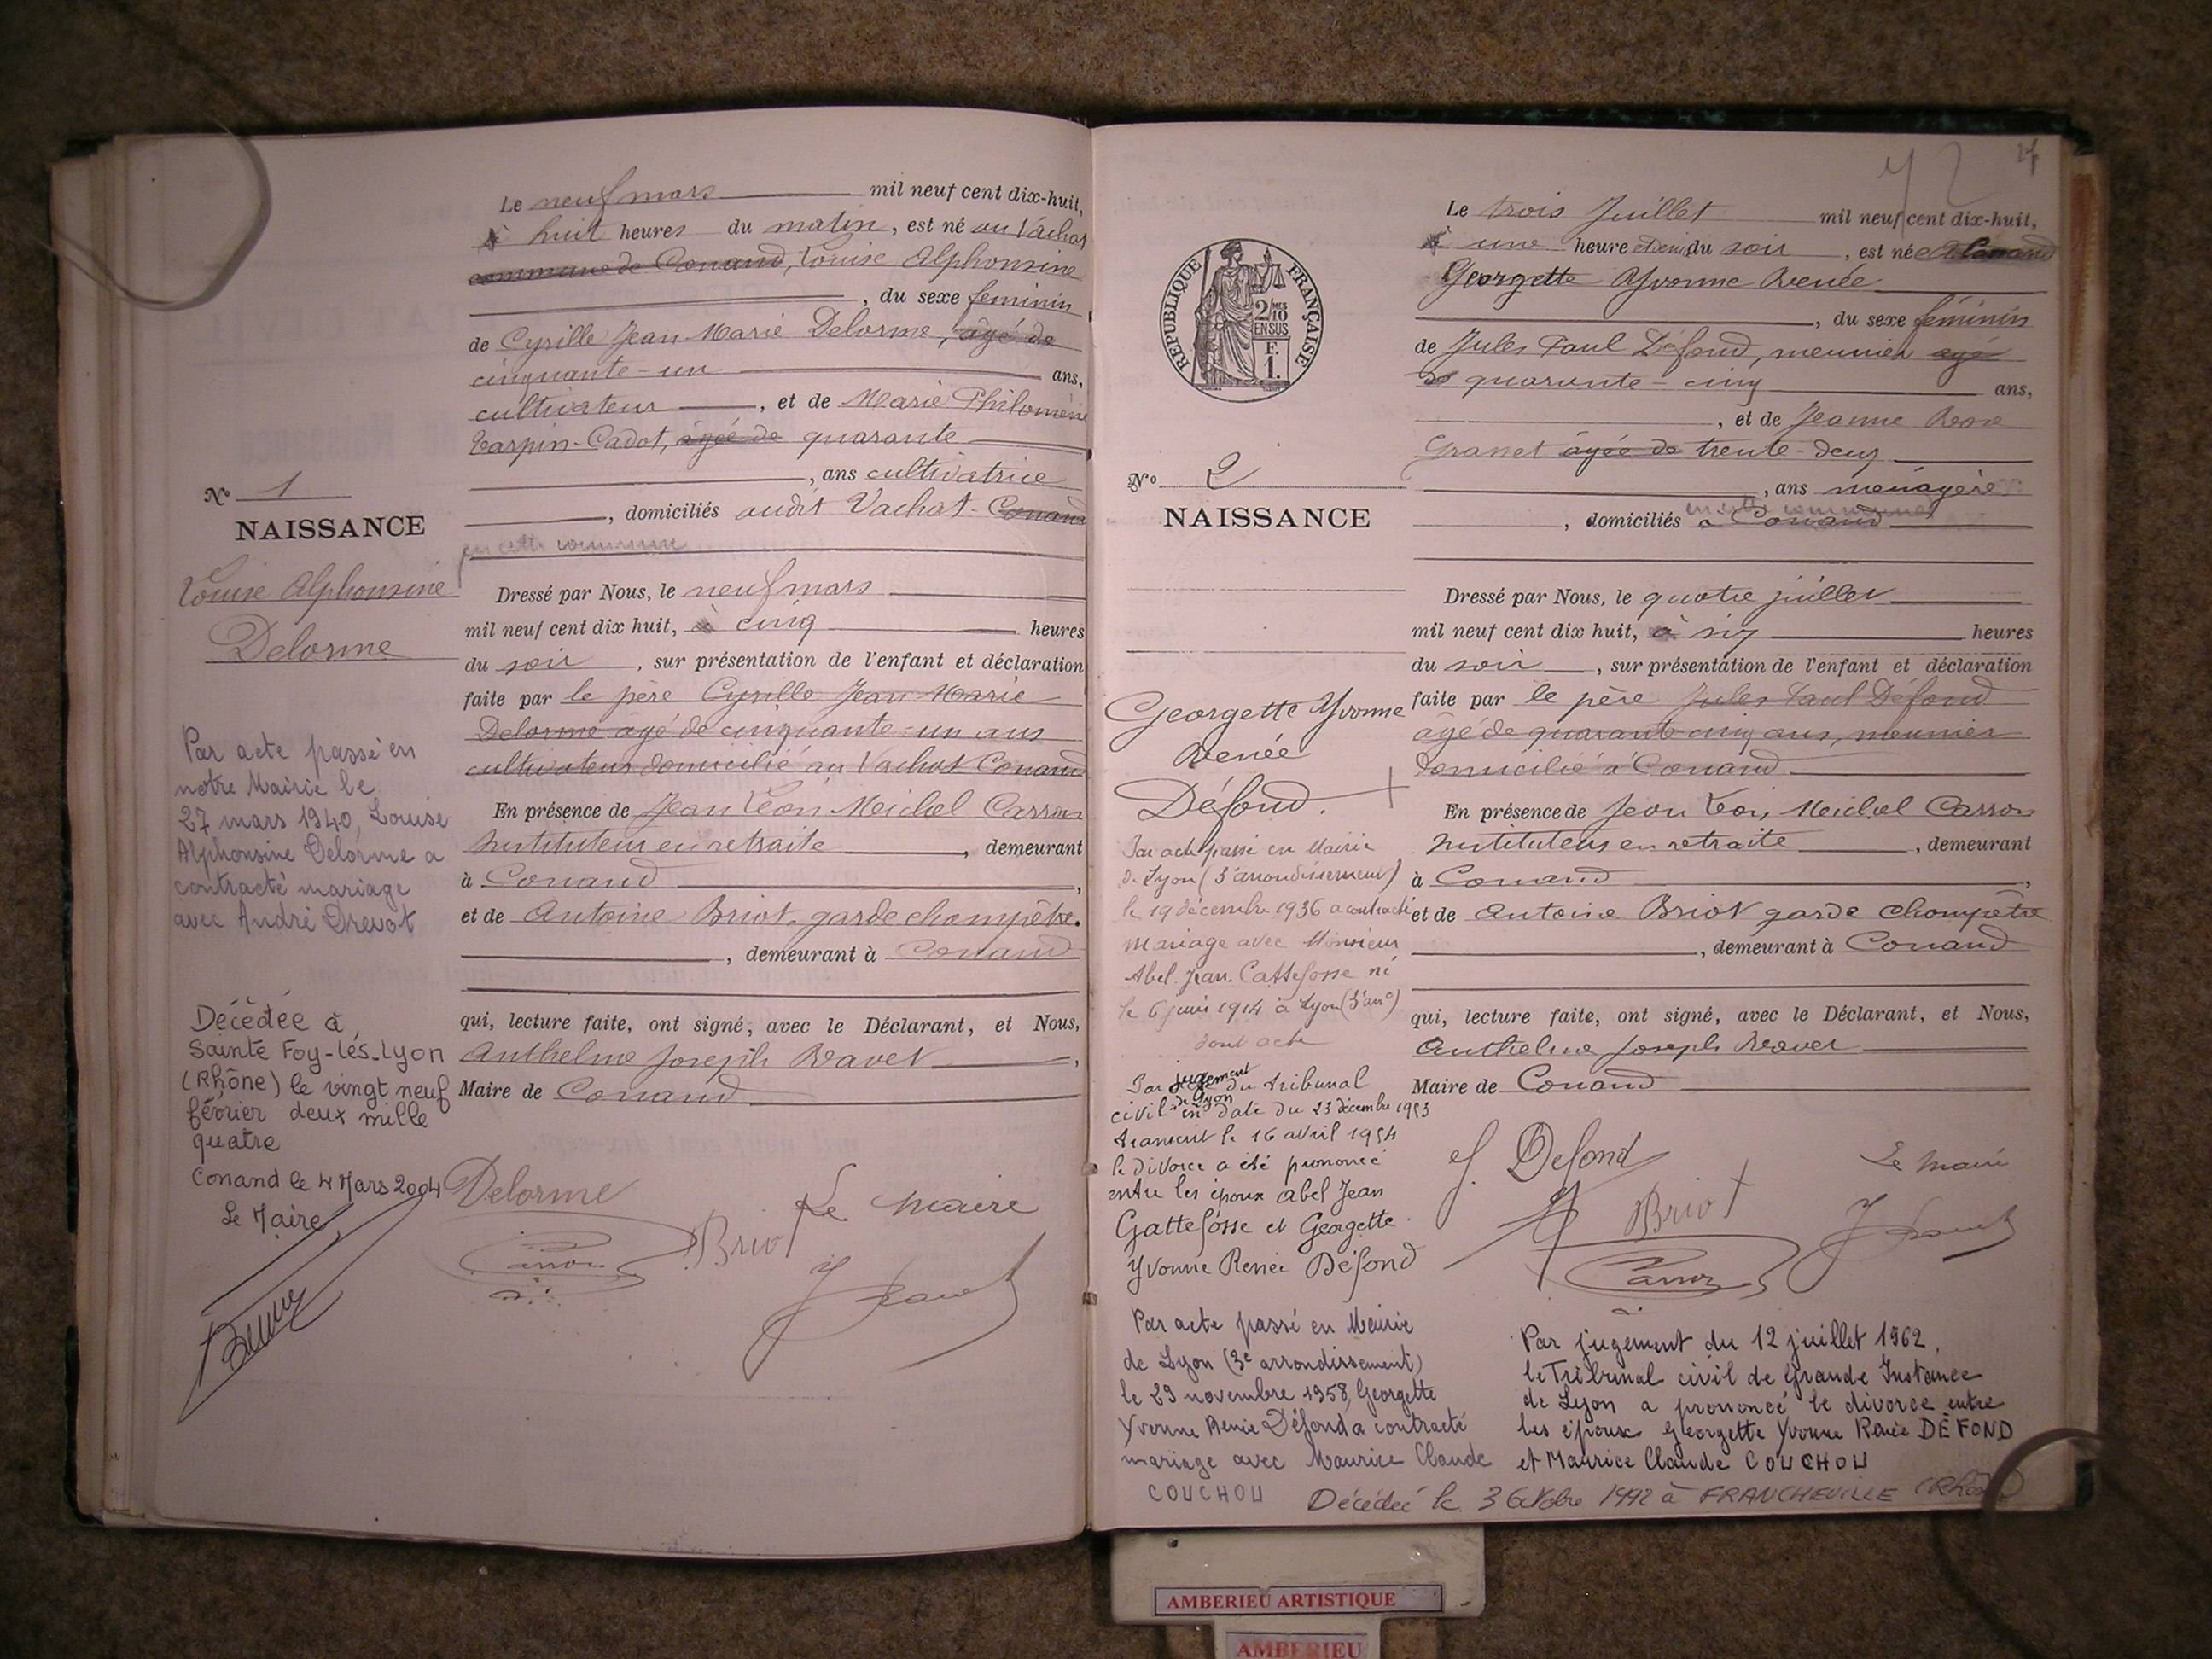 Le neuf mars mil neuf cent dix-huit,
à huit heures du matin, est né au Vachat
commune de Conand, Louise Alphonsine
, du sexe féminin
de Cyrille Jean-Marie Delorme, âgé de
cinquante-un ans,
cultivateur, et de Marie Philomène
Tarpin-Cadot, âgée de quarante
, ans cultivatrice
, domiciliés audit Vachat-Conand
en cette commune
Dressé par Nous, le neuf mars
mil neuf cent dix huit, à cinq heures
du soir, sur présentation de l'enfant et déclaration
faite par le père Cyrille Jean Marie
Delorme âgé de cinquante-un ans
cultivateur domicilié au Vachat Conand
En présence de Jean Léon Meichel Carron
Instituteur en retraite, demeurant
à Conand,
et de Antoine Briot garde champêtre.
, demeurant à Conand
qui, lecture faite, ont signé, avec le Déclarant, et Nous,
Anthelme Joseph Ravet,
Maire de Conand
Delorme
Le Maire
Briot
Carron
J Ravet
N° 1
NAISSANCE
Louise Alphonsine
Delorme
Par acte passé en
notre Mairie le
27 mars 1940, Louise
Alphonsine Delorme a
contracté mariage
avec André Drevot
Décédée à
Sainte Foy-lès-Lyon
(Rhône) le vingt neuf
février deux mille
quatre
Conand le 4 Mars 2004
Le Maire
RÉPUBLIQUE FRANÇAISE
2/10 MES
EN SUS
F.
1.
N° 2
NAISSANCE
Georgette Yvonne
Renée
Défond.
Par acte passé en Mairie
de Lyon (3e arrondissement)
le 19 décembre 1936 a contracté
mariage avec Monsieur
Abel Jean Gattefosse né
le 6 juin 1914 à Lyon (3e arrt)
dont acte
Par jugement du tribunal
civil de Lyon en date du 23 décembre 1953
transcrit le 16 avril 1954
le divorce a été prononcé
entre les époux Abel Jean
Gattefosse et Georgette
Yvonne Renée Défond
Par acte passé en Mairie
de Lyon (3e arrondissement)
le 29 novembre 1958, Georgette
Yvonne Renée Défond a contracté
mariage avec Maurice Claude
COUCHOU
Le trois Juillet mil neuf cent dix-huit,
à une heure et demi du soir, est né à Conand
Georgette Yvonne Renée
, du sexe féminin
de Jules Paul Défond, meunier âgé
de quarante-cinq ans,
, et de Jeanne Rose
Granet âgée de trente-deux
, ans ménagère
en cette commune
, domiciliés à Conand
Dressé par Nous, le quatre juillet
mil neuf cent dix huit, à six heures
du soir, sur présentation de l'enfant et déclaration
faite par le père Jules Paul Défond
âgé de quarante-cinq ans, meunier
domicilié à Conand
En présence de Jean Léon Meichel Carron
Instituteur en retraite, demeurant
à Conand,
et de Antoine Briot garde champêtre
, demeurant à Conand
qui, lecture faite, ont signé, avec le Déclarant, et Nous,
Anthelme Joseph Ravet
Maire de Conand
J. Defond
Le Maire
Briot
Carron
J Ravet
Par jugement du 12 juillet 1962,
le Tribunal civil de Grande Instance
de Lyon a prononcé le divorce entre
les époux Georgette Yvonne Renée DÉFOND
et Maurice Claude COUCHOU
Décédée le 3 Octobre 1992 à FRANCHEVILLE (Rhône)
AMBERIEU ARTISTIQUE
AMBERIEU